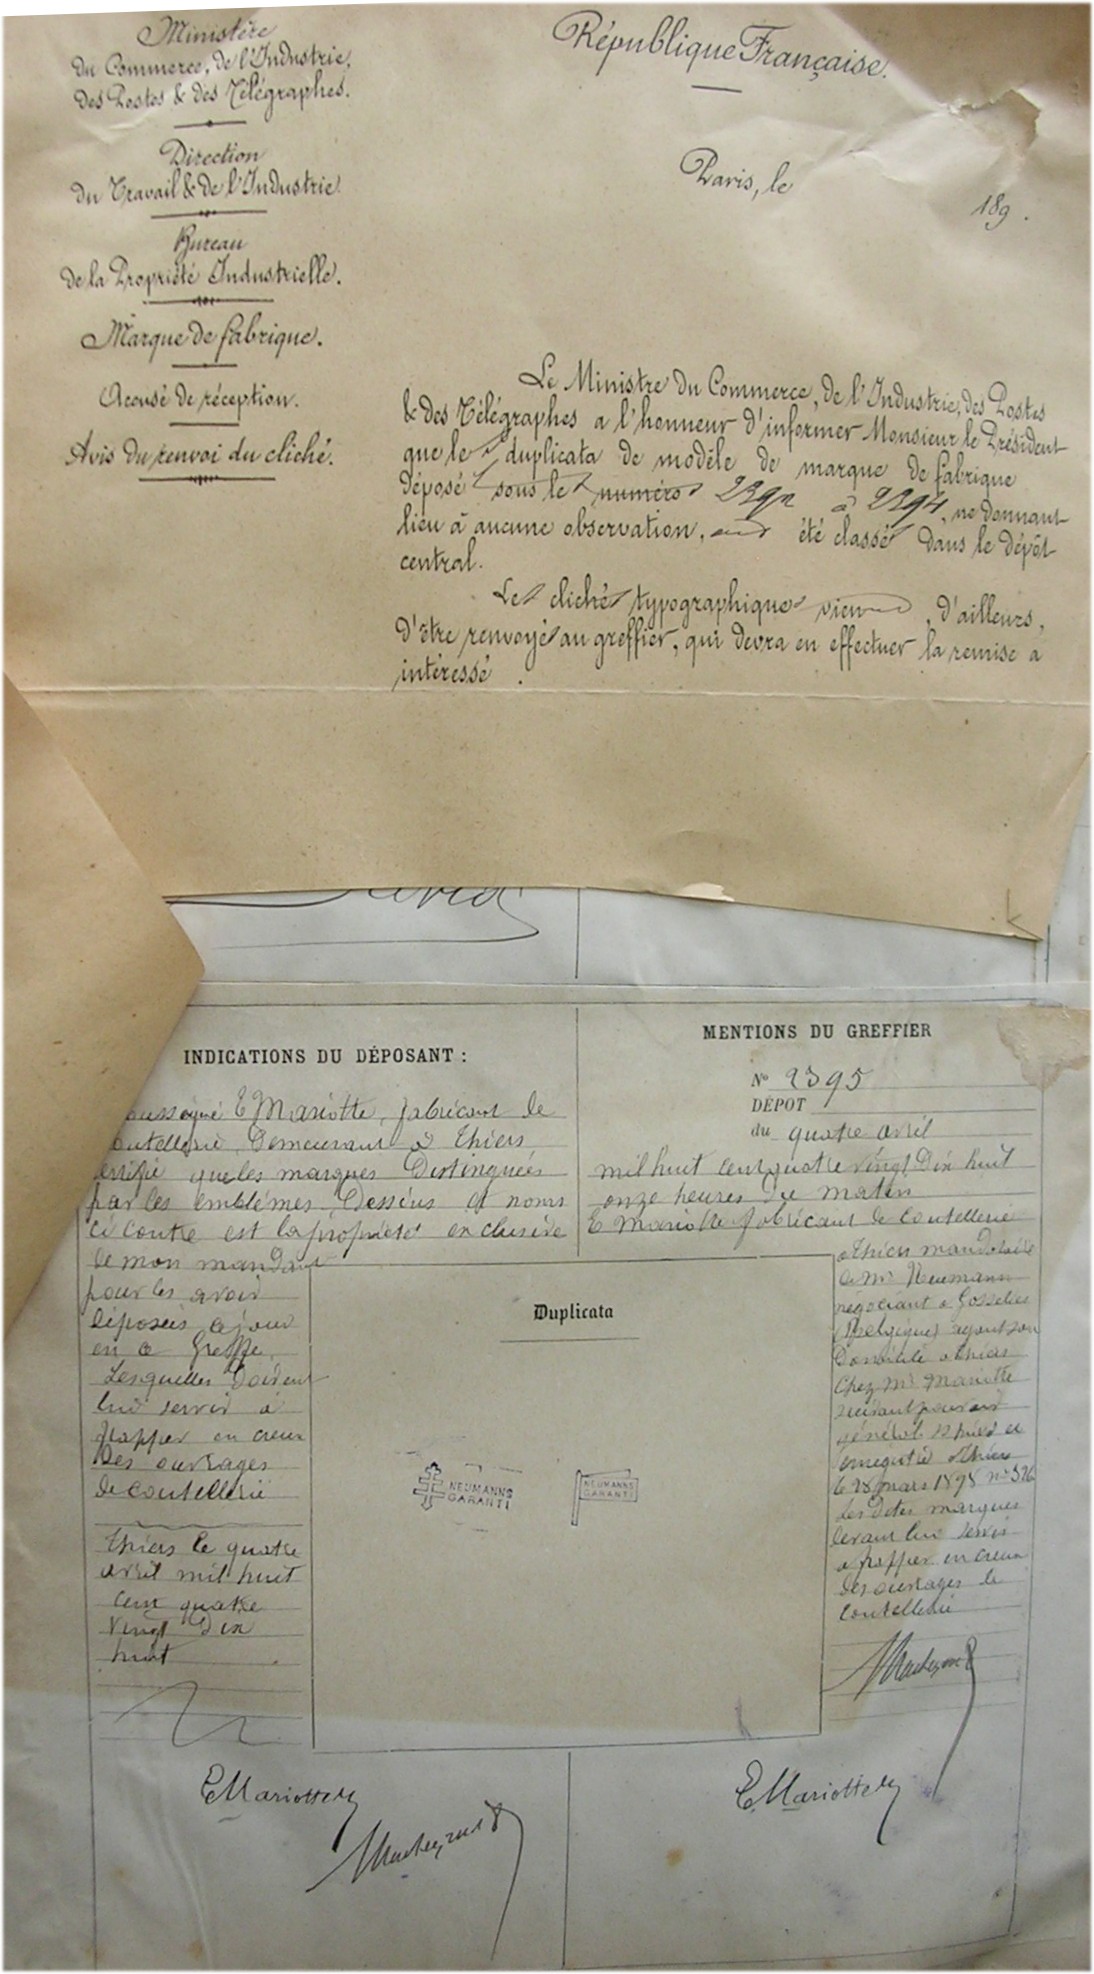 Ministère
du Commerce, de l'Industrie,
des Postes & des Télégraphes.
Direction
du Travail & de l'Industrie
Bureau
de la Propriété Industrielle.
Marque de fabrique.
Accusé de réception.
Avis du renvoi du cliché.
République Française.
Paris, le
189 .
Le Ministre du Commerce, de l'Industrie, des Postes
& des Télégraphes a l'honneur d'informer Monsieur le Président
que les duplicata de modèle de marque de fabrique
déposés sous les numéros 2392 à 2394, ne donnant
lieu à aucune observation, ont été classés dans le dépôt
central.
Les clichés typographiques viennent, d'ailleurs,
d'être renvoyés au greffier, qui devra en effectuer la remise à
intéressé .
David
INDICATIONS DU DÉPOSANT :
E Mariotte, fabricant de
coutellerie Demeurant à Thiers
certifie que les marques Distinguées
par les emblèmes, Dessins et noms
ci contre est la propriété exclusive
de mon mandant
pour les avoir
déposées ce jour
en ce Greffe.
Lesquelles Doivent
lui servir à
frapper en creux
Des ouvrages
de coutellerie
Thiers le quatre
avril mil huit
cent quatre
vingt Dix
huit
E Mariotte
MENTIONS DU GREFFIER
No 2395
DÉPOT
du quatre avril
mil huit cent quatre vingt Dix huit
onze heures Du matin
E Mariotte fabricant de Coutellerie
à Thiers mandataire
de Mr Neumann
négociant à Gosselies
(Belgique) ayant son
Domicile à Thiers
Chez Mr Mariotte
suivant pouvoir
enregistré à Thiers
le 28 mars 1898 no 526
les Dites marques
devant lui servir
a frapper en creux
des ouvrages de
Coutellerie
E Mariotte
Duplicata
NEUMANNS
GARANTI
NEUMANNS
GARANTI